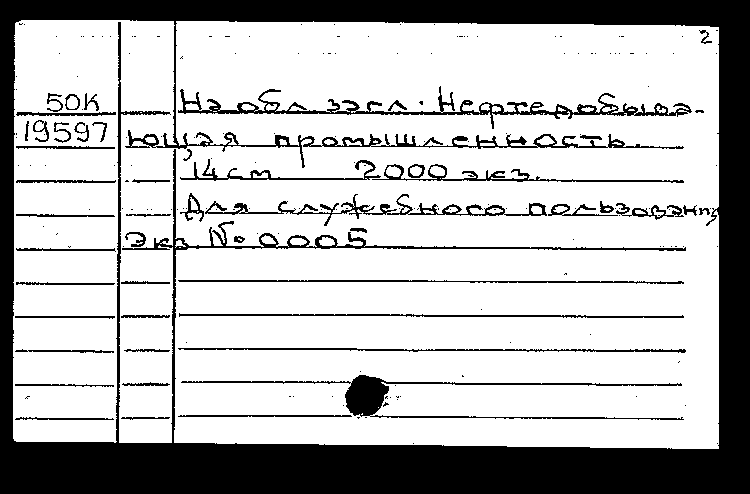 2
50К На обл. загл.: Нефтедобыва-
19597 ющая промышленность.
14 см. 2000 экз.
Для служебного пользования
экз. № 0005